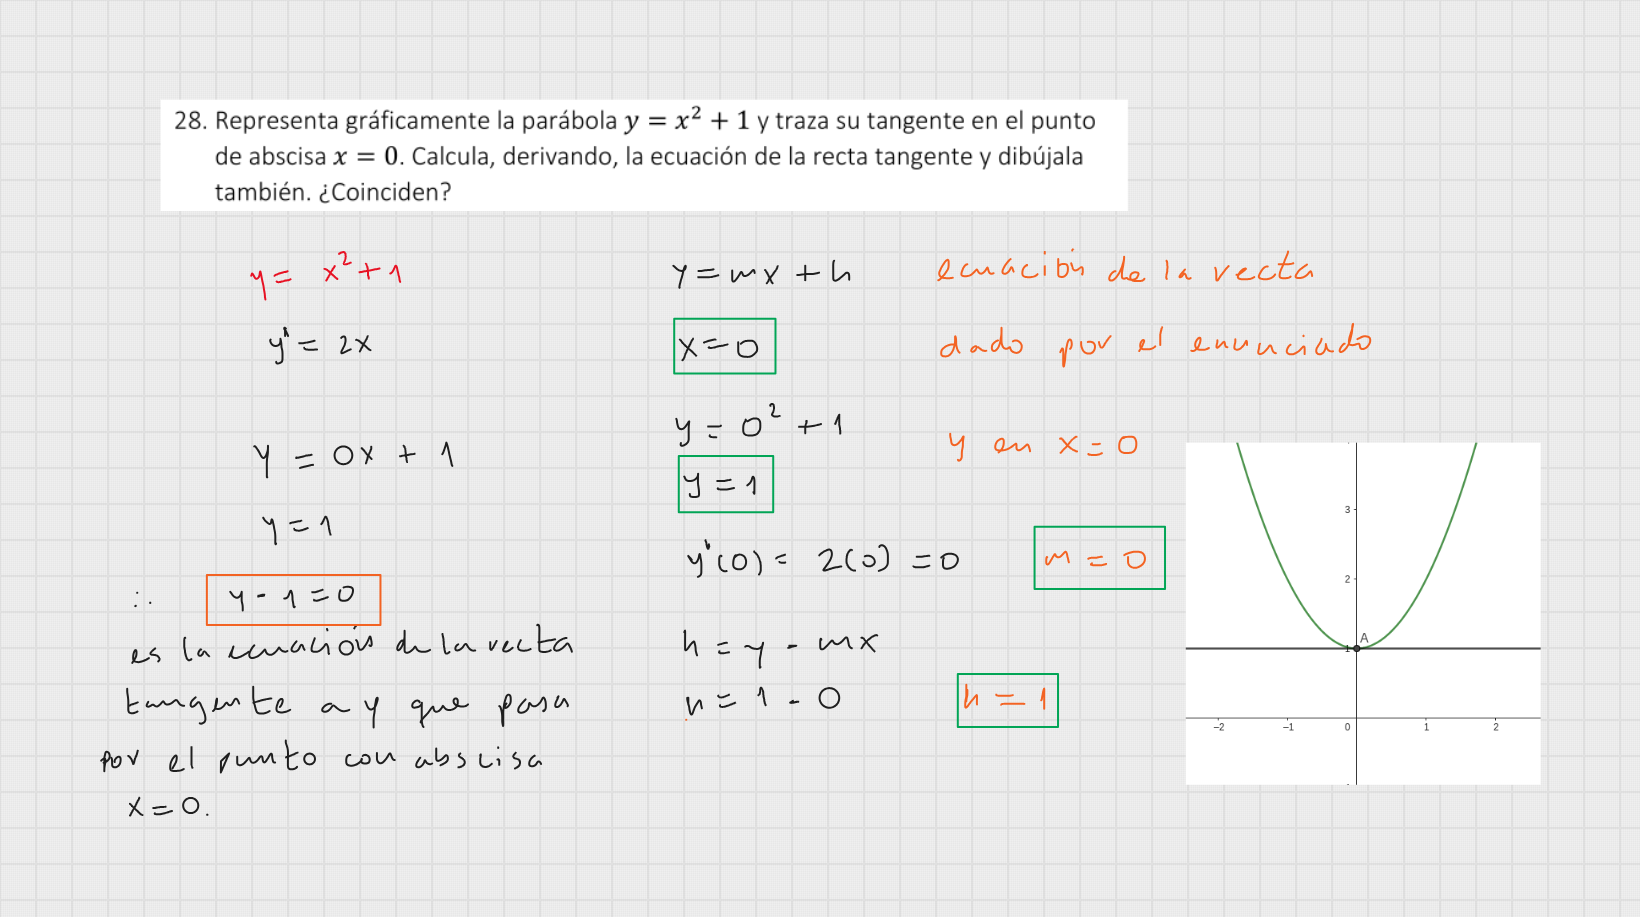 28. Representa gráficamente la parábola y = x² + 1 y traza su tangente en el punto
de abscisa x = 0. Calcula, derivando, la ecuación de la recta tangente y dibújala
también. ¿Coinciden?
y = x² + 1
y' = 2x
y = 0x + 1
y = 1
∴ y - 1 = 0
es la ecuación de la recta
tangente a y que pasa
por el punto con abscisa
x = 0.
y = mx + n
x = 0
y = 0² + 1
y = 1
y'(0) = 2(0) = 0
n = y - mx
n = 1 - 0
ecuación de la recta
dado por el enunciado
y en x = 0
m = 0
n = 1
3
2
A
1
-2 -1 0 1 2